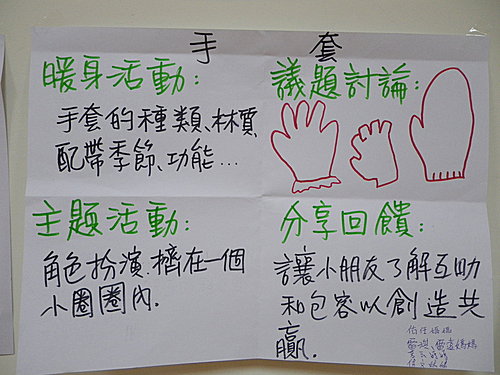 手套
暖身活動:
手套的種類、林質、
配帶季節、功能...
議題討論:
主題活動:
角色扮演.擠在一個
小圈圈內.
分享回饋:
讓小朋友了解互助
和包容以創造共
贏.